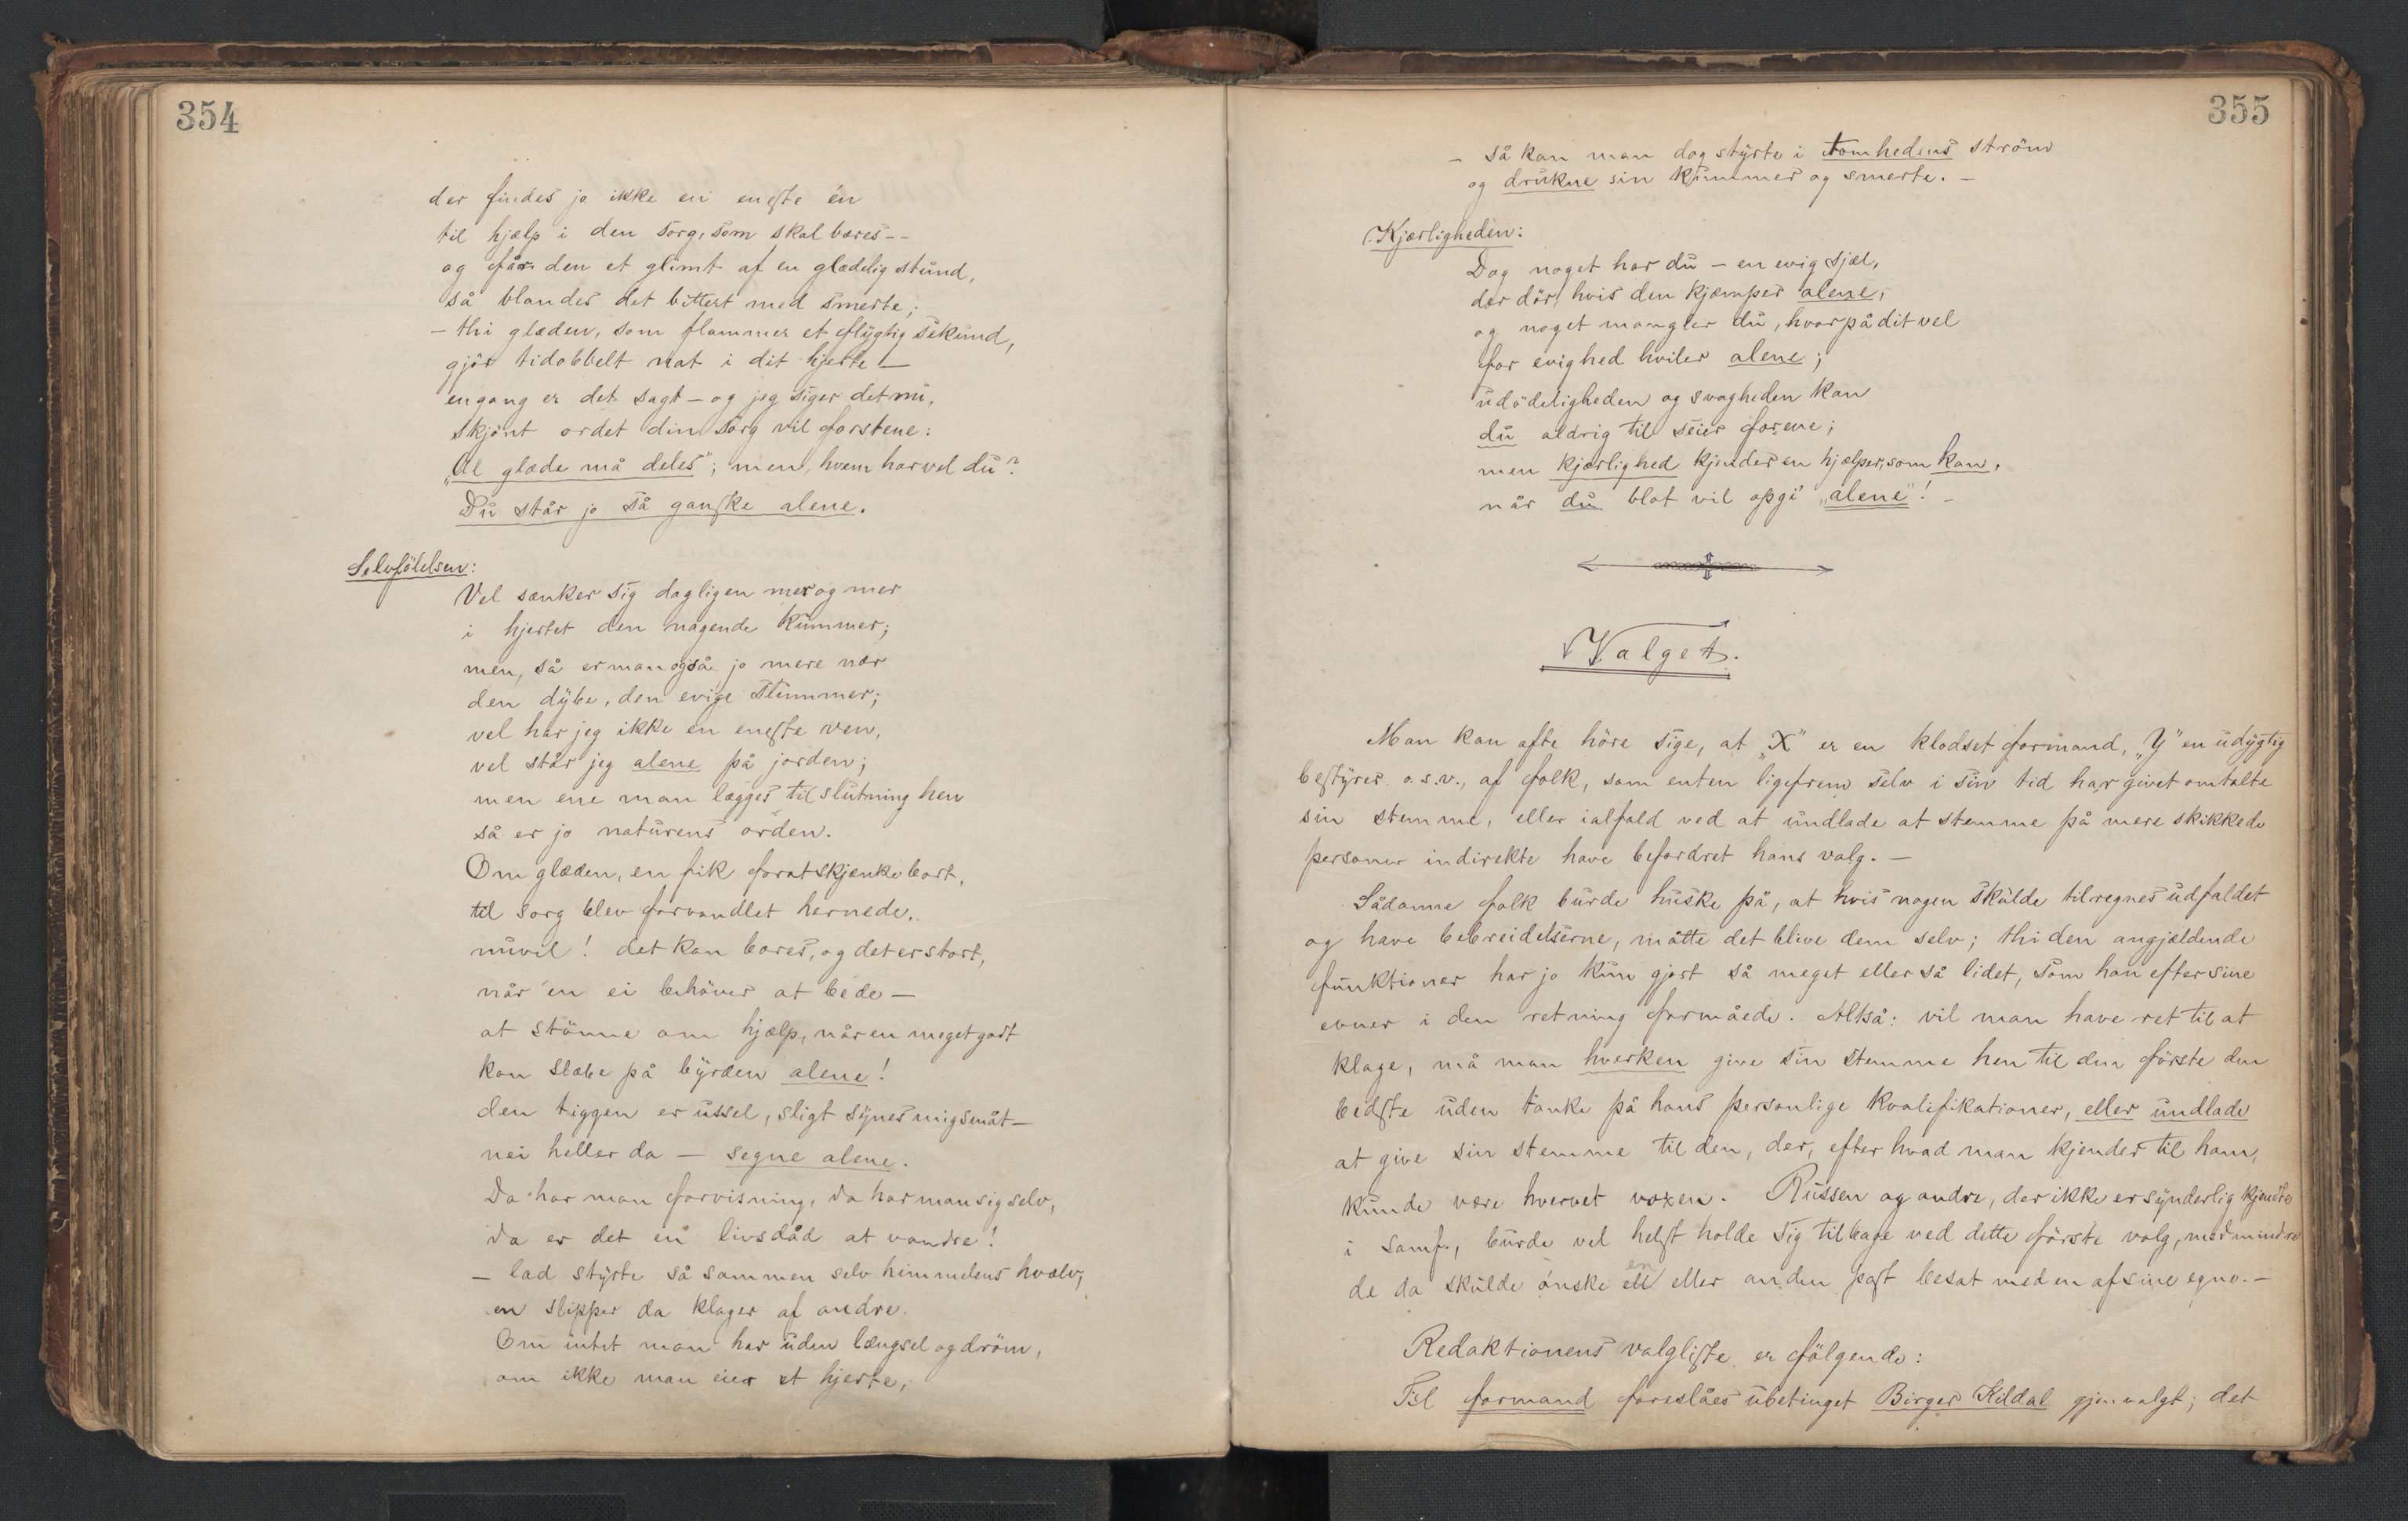 354
der findes jo ikke en eneste én
til hjælp i den sorg, som skal bæres--
og får den et glimt af en glædelig stund,
så blandes det bittert med smerte;
- thi glæden, som flammer et flygtig sekund,
gjör tidobbelt nat i dit hjerte -
engang er det sagt - og jeg siger det nu,
skjönt ordet din sorg vil forstene:
"Al glæde må deles"; men, hvem har vel du?
Du står jo så ganske alene.
Selvfölelsen:
Vel sænker sig dagligen mer og mer
i hjertet den nagende kummer;
men, så er man også jo mere nær
den dybe, den evige slummer;
vel har jeg ikke en eneste ven,
vel står jeg alene på jorden;
men ene man lægges til slutning hen
så er jo naturens orden.
Om glæden, en fik for at skjænke bort,
til sorg blev forvandlet hernede,
nuvel! det kan bæres, og det er stort,
når en ei behöver at bede -
at stönne om hjælp, når en meget godt
kan slæbe på byrden alene!
den tiggen er ussel, sligt synes mig småt -
nei heller da - segne alene.
Da har man forvisning, da har man sig selv,
da er det en livsdåd at vandre!
- lad styrte så sammen selv himmelens hvælv,
en slipper da klager af andre.
Om intet man har uden længsel og dröm,
om ikke man eier et hjerte,
355
- så kan man dog styrte i tomhedens ström
og drukne sin kummer og smerte. -
Kjærligheden:
Dog noget har du - en evig sjæl,
der dör, hvis den kjæmper alene,
og noget mangler du, hvorpå dit vel
for evighed hviler alene;
udödeligheden og svagheden kan
du aldrig til seier forene;
men kjærlighed kjender en hjælper, som kan,
når du blot vil opgi "alene"! -
Valget.
Man kan ofte höre sige, at "X" er en klodset formand, "Y" en udygtig
bestyrer o.s.v., af folk, som enten ligefrem selv i sin tid har givet omtalte
sin stemme, eller ialfald ved at undlade at stemme på mere skikkede
personer indirekte have befordret hans valg. -
Sådanne folk burde huske på, at hvis nogen skulde tilregnes udfaldet
og have bebreidelserne, måtte det blive dem selv; thi den angjældende
funktionær har jo kun gjort så meget eller så lidet, som han efter sine
evner i den retning formåede. Altså: vil man have ret til at
klage, må man hverken give sin stemme hen til den förste den
bedste uden tanke på hans personlige kvalifikationer, eller undlade
at give sin stemme til den, der, efter hvad man kjender til ham,
kunde være hvervet voxen. Russen og andre, der ikke er synderlig kjendte
i Samf., burde vel helst holde sig tilbage ved dette förste valg, medmindre
de da skulde önske en eller anden post besat med en af sine egne. -
Redaktionens valgliste er fölgende:
Til formand foreslåes ubetinget Birger Kildal gjenvalgt; det